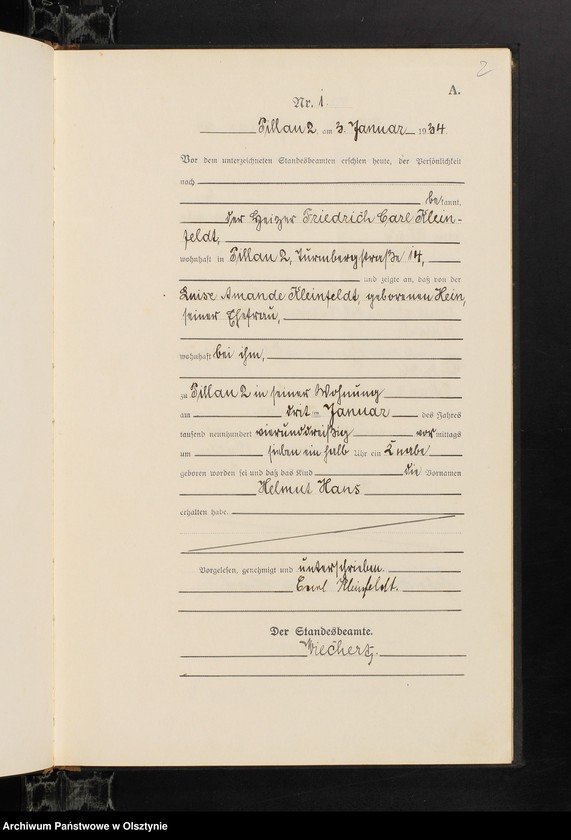 2
A.
Nr. 1.
Pillau 2, am 3. Januar 1934.
Vor dem unterzeichneten Standesbeamten erschien heute, der Persönlichkeit
nach
bekannt,
der Heizer Friedrich Carl Klein-
feldt,
wohnhaft in Pillau 2, Turmbergstraße 14,
und zeigte an, daß von der
Luise Amande Kleinfeldt, geborenen Hein,
seiner Ehefrau,
wohnhaft bei ihm,
zu Pillau 2 in seiner Wohnung
am drit en Januar des Jahres
tausend neunhundert vierunddreißig vormittags
um sieben ein halb Uhr ein Knabe
geboren worden sei und daß das Kind die Vornamen
Helmut Hans
erhalten habe.
Vorgelesen, genehmigt und unterschrieben.
Carl Kleinfeldt.
Der Standesbeamte.
Wiechert.
Archiwum Państwowe w Olsztynie